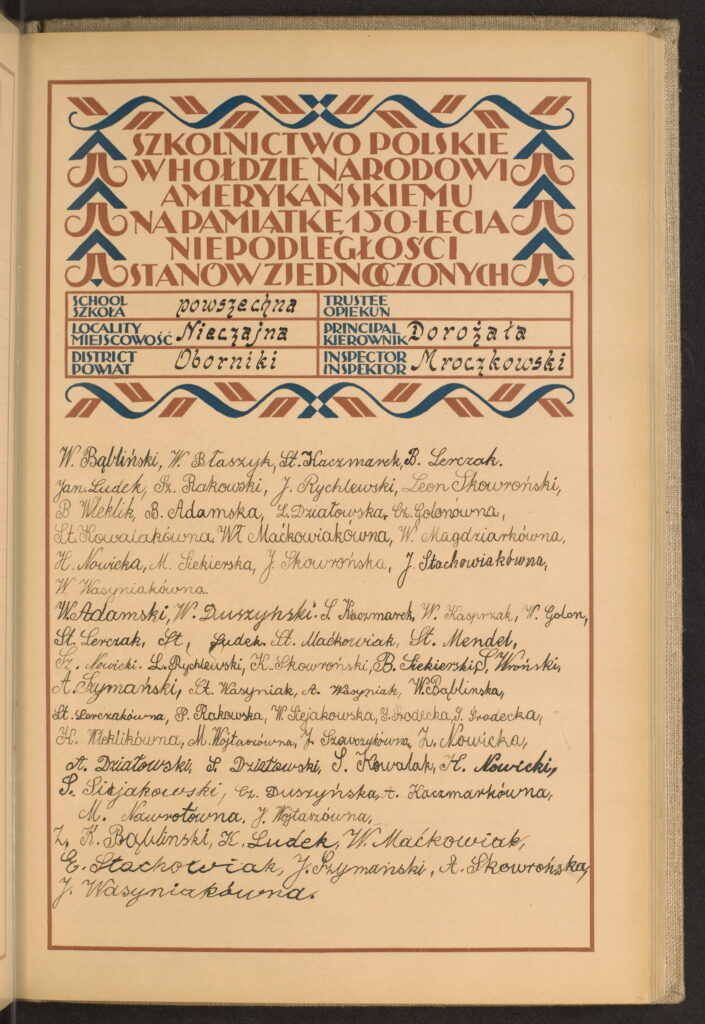 SZKOLNICTWO POLSKIE
W HOŁDZIE NARODOWI
AMERYKAŃSKIEMU
NA PAMIĄTKĘ 150-LECIA
NIEPODLEGŁOŚCI
STANÓW ZJEDNOCZONYCH
SCHOOL SZKOŁA powszechna TRUSTEE OPIEKUN
LOCALITY MIEJSCOWOŚĆ Nieczajna PRINCIPAL KIEROWNIK Dorożała
DISTRICT POWIAT Oborniki INSPECTOR INSPEKTOR Mroczkowski
W. Bąbliński, W. Błaszyk, St. Kaczmarek, B. Lerczak.
Jan Ludek, Sz. Rakowski, J. Rychlewski, Leon Skowroński,
B Weklik, B. Adamska, L. Działowska, Cz. Golonówna,
St. Kowalakówna, Wł Maćkowiakówna, W. Magdziarkówna,
H. Nowicka, M. Siekierska, J. Skowrońska, J. Stachowiakówna,
W. Wasyniakówna.
W. Adamski, W. Duszyński. S. Kaczmarek, W. Kasprzak, W. Golon,
St. Lerczak, St, Ludek. St. Maćkowiak, St. Mendel,
Sz. Nowicki. L. Rychlewski, K. Skowroński, B. Siekierski, S. Wroński,
A. Szymański, St. Wasyniak, A. Wasyniak, W. Bąblinska,
St. Lerczakówna, P. Rakowska, W. Siejakowska, J. Grodecka, J. Grodecka,
K. Weklikówna, M. Wojtaszówna, J. Szewczykówna, Z. Nowicka,
A. Działowski, S. Działowski, S. Kowalak, H. Nowicki,
S. Siejakowski, Cz. Duszyńska, A. Kaczmarkówna,
M. Nawrotówna. J. Wojtaszówna,
Z. K. Bąbliński, K. Ludek, W. Maćkowiak,
E. Stachowiak, J. Szymański, A. Skowrońska,
J. Wasyniakówna.